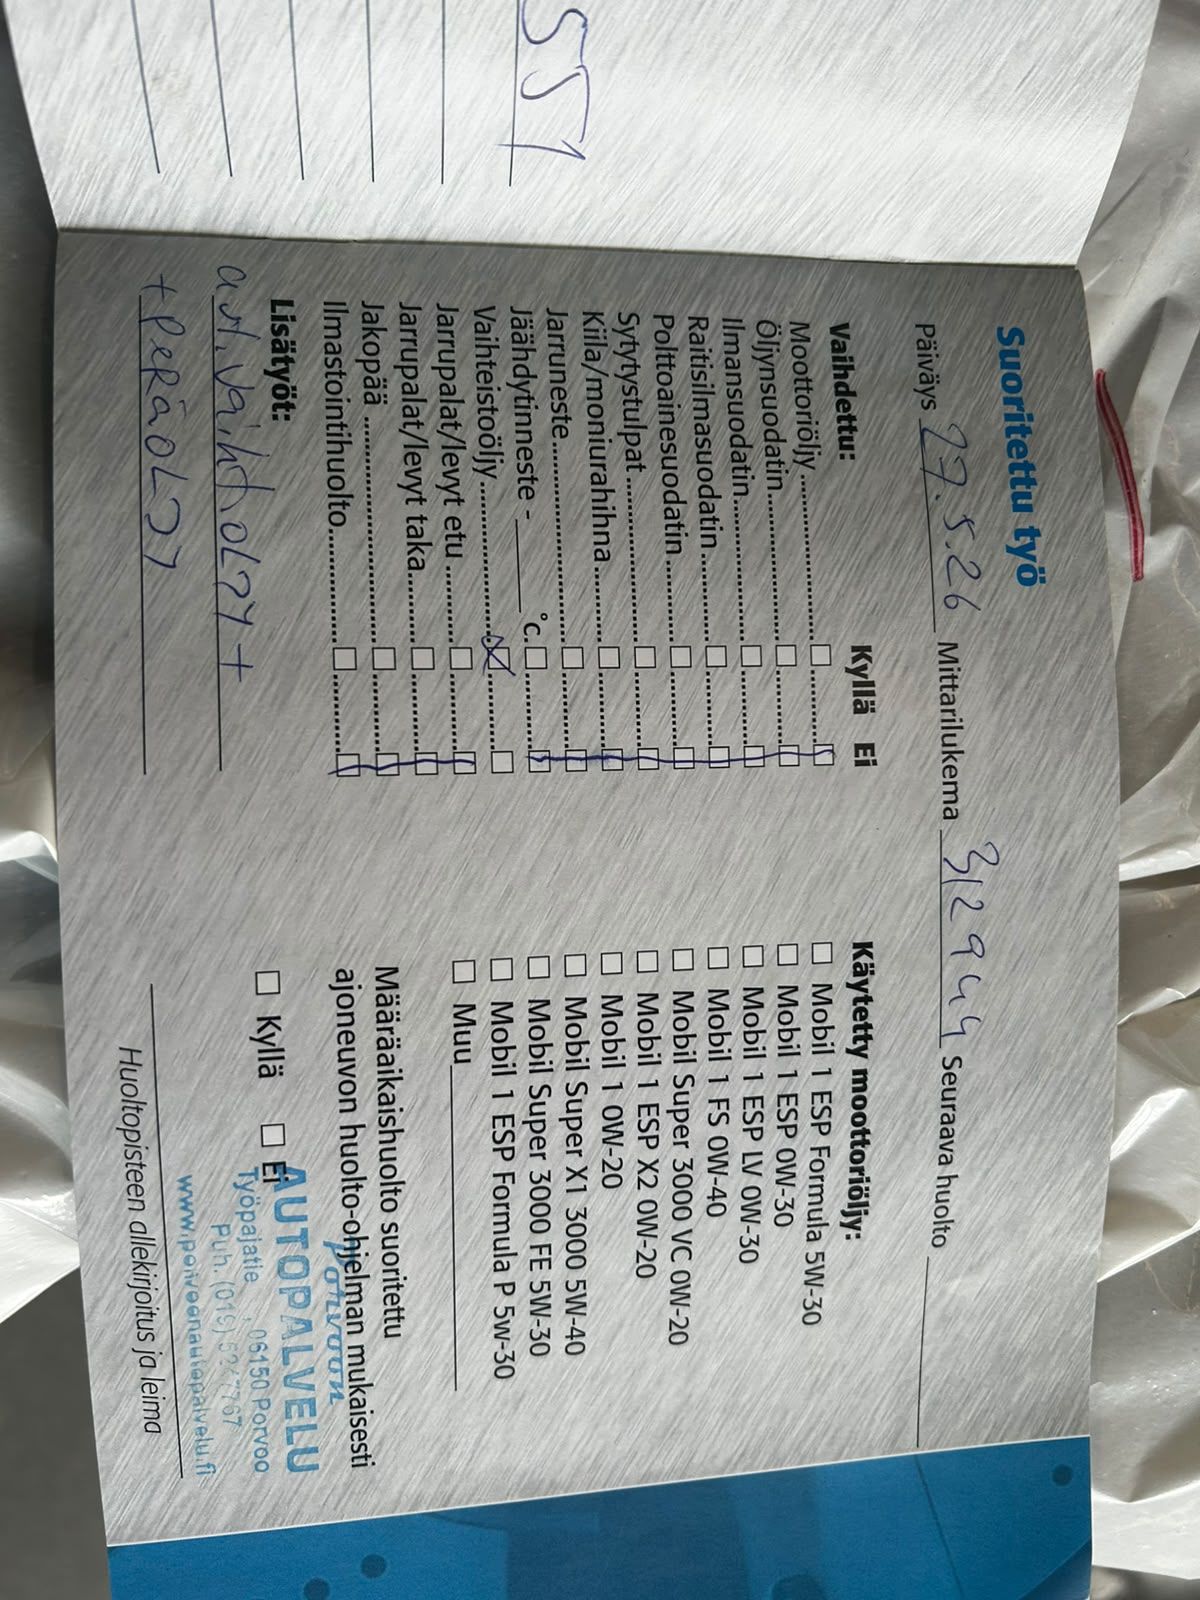 551
Suoritettu työ
Päiväys 27.5.26 Mittarilukema 312944 Seuraava huolto
Vaihdettu: Kyllä Ei
Moottoriöljy
Öljynsuodatin
Ilmansuodatin
Raitisilmasuodatin
Polttoainesuodatin
Sytytystulpat
Kiila/moniurahihna
Jarruneste
Jäähdytinneste - °c.
Vaihteistoöljy
Jarrupalat/levyt etu
Jarrupalat/levyt taka
Jakopää
Ilmastointihuolto
Lisätyöt:
aut.vaihtoLJY +
+ PERÄOLJY
Käytetty moottoriöljy:
Mobil 1 ESP Formula 5W-30
Mobil 1 ESP 0W-30
Mobil 1 ESP LV 0W-30
Mobil 1 FS 0W-40
Mobil Super 3000 VC 0W-20
Mobil 1 ESP X2 0W-20
Mobil 1 0W-20
Mobil Super X1 3000 5W-40
Mobil Super 3000 FE 5W-30
Mobil 1 ESP Formula P 5w-30
Muu
Määräaikaishuolto suoritettu
ajoneuvon huolto-ohjelman mukaisesti
Kyllä Ei
Porvoon
AUTOPALVELU
Työpajatie , 06150 Porvoo
Puh. (019) 5247767
www.porvoonautopalvelu.fi
Huoltopisteen allekirjoitus ja leima